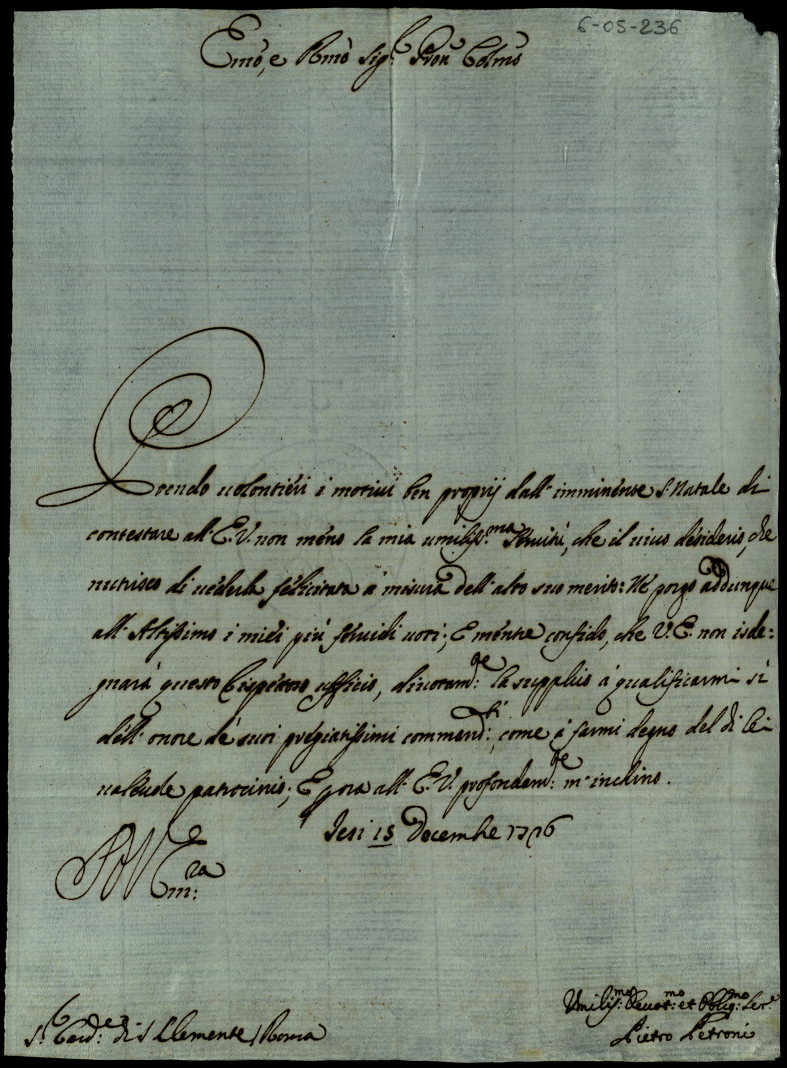 6-05-236
Emo, e Rmo Sig.r Pron Colmo
Prendo uolontieri i motiui ben proprij dall'imminente S. Natale di
contestare all'E.V. non meno la mia umiliss.ma seruitù, che il uiuo desiderio, che
nutrisco di uederla felicitata à misura dell'alto suo merito: Ne porgo addunque
all'Altissimo i miei più feruidi uoti; E mentre confido, che V.E. non isde:
gnarà questo rispettoso ufficio, diuotam.te la supplico à qualificarmi sì
dell'onore de' suoi pregiatissimi commandi, come à farmi degno del di lei
ualeuole patrocinio; E per fine all'E.V. profondam.te m'inchino.
Jesi 15 Decembe 1726
Em:ra
S.r Card.le di S Clemente / Roma
Umiliss:mo Deuot:mo et Obblig:mo Ser.e
Pietro Petroni